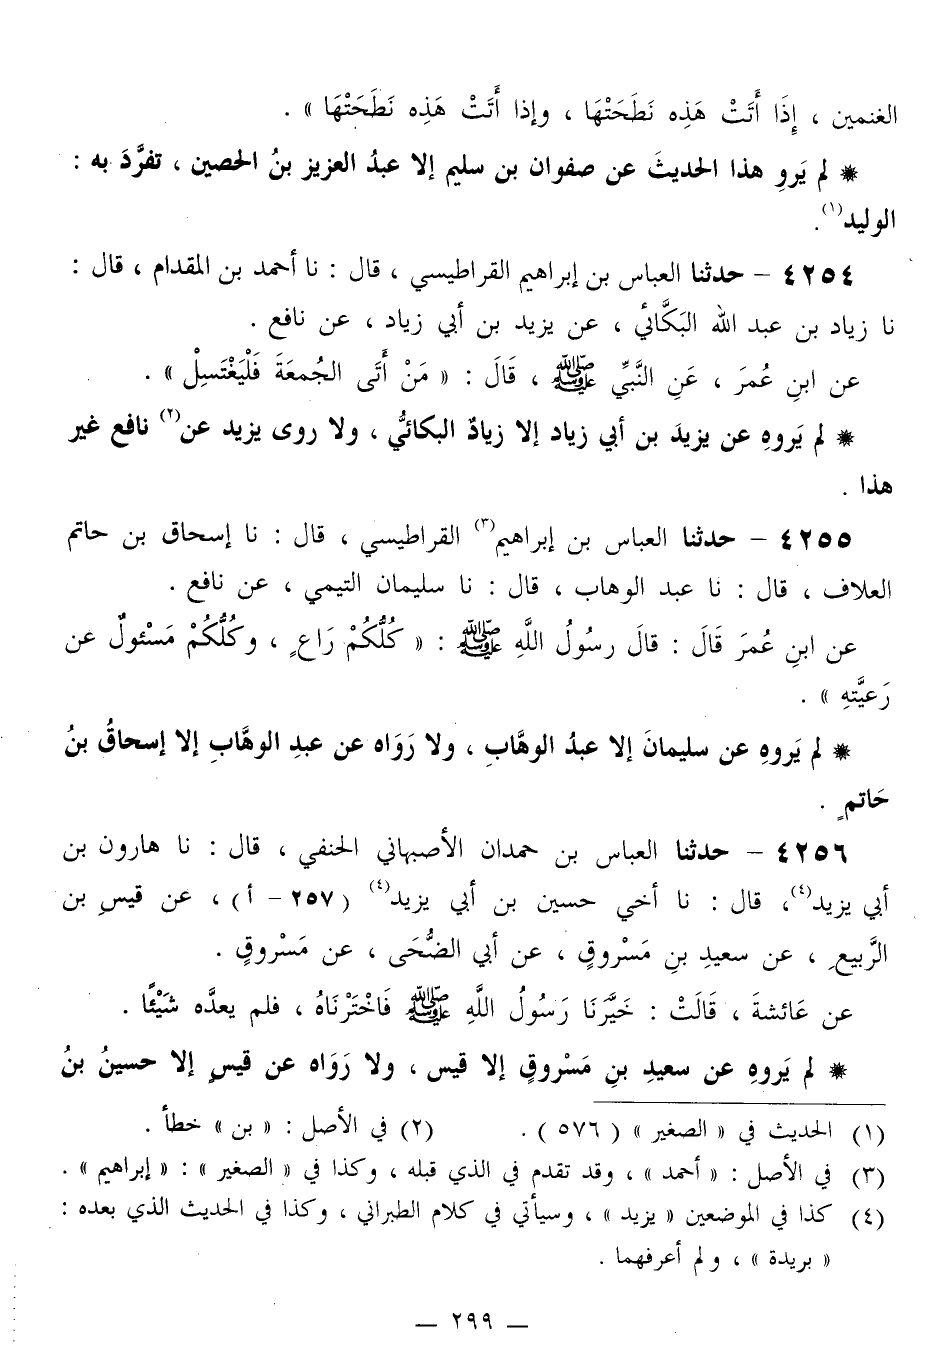 الغنمين ، إِذَا أَتَتْ هَذِه نَطَحَتْهَا ، وإذا أَتَتْ هَذِه نَطَحَتْهَا » .
* لم يَروِ هذا الحديثَ عن صفوان بن سليم إلا عبدُ العزيز بنُ الحصين ، تفرَّدَ به :
الوليد(١).
٤٢٥٤ – حدثنا العباس بن إبراهيم القراطيسي ، قال : نا أحمد بن المقدام ، قال :
نا زياد بن عبد الله البَكَّائي ، عن يزيد بن أبي زياد ، عن نافع .
عن ابنِ عُمرَ ، عَنِ النَّبيِّ ﷺ ، قَالَ : « مَنْ أَتَى الجُمعَةَ فَلْيَغْتَسِلْ » .
* لم يَروهِ عن يزيدَ بن أبي زياد إلا زيادٌ البكائيُّ ، ولا روى يزيد عن(٢) نافع غير
هذا .
٤٢٥٥ – حدثنا العباس بن إبراهيم(٣) القراطيسي ، قال : نا إسحاق بن حاتم
العلاف ، قال : نا عبد الوهاب ، قال : نا سليمان التيمي ، عن نافع .
عن ابنِ عُمرَ قَالَ : قالَ رسُولُ اللَّهِ ﷺ : « كُلُّكُمْ رَاعٍ ، وكُلُّكُمْ مَسْئولٌ عن
رَعيَّتهِ » .
* لم يَروهِ عن سليمانَ إلا عبدُ الوهَّابِ ، ولا رَوَاه عن عبدِ الوهَّابِ إلا إسحاقُ بنُ
حَاتمٍ .
٤٢٥٦ – حدثنا العباس بن حمدان الأصبهاني الحنفي ، قال : نا هارون بن
أبي يزيد(٤)، قال : نا أخي حسين بن أبي يزيد(٤) ( ٢٥٧ – أ ) ، عن قيسِ بن
الرَّبيعِ ، عن سعيدِ بنِ مَسْروقٍ ، عن أبي الضُّحَى ، عن مَسْروقٍ .
عن عَائشةَ ، قَالَتْ : خَيَّرَنَا رَسُولُ اللَّهِ ﷺ فَاخْتَرْنَاهُ ، فلم يعدَّه شَيْئًا .
* لم يَروهِ عن سعيدِ بنِ مَسْروقٍ إلا قيس ، ولا رَوَاه عن قيسٍ إلا حسينُ بنُ
(١) الحديث في « الصغير » ( ٥٧٦ ) . (٢) في الأصل : « بن » خطأ .
(٣) في الأصل : « أحمد » ، وقد تقدم في الذي قبله ، وكذا في « الصغير » : « إبراهيم » .
(٤) كذا في الموضعين « يزيد » ، وسيأتي في كلام الطبراني ، وكذا في الحديث الذي بعده :
« بريدة » ، ولم أعرفهما .
— ٢٩٩ —